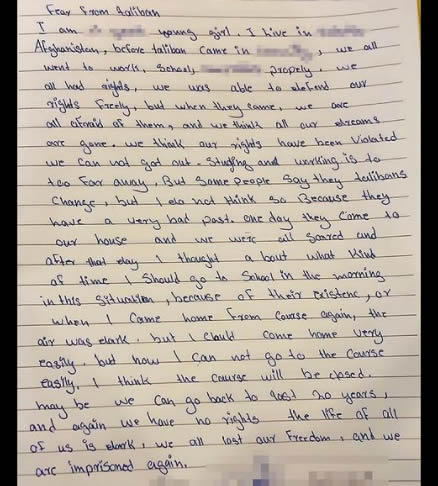 Fear from taliban
I am young girl. I live in
Afghanistan, before taliban came in , we all
went to work, school, properly we
all had rights, we was able to defend our
rights freely, but when they came, we are
all afraid of them, and we think all our dreams
are gone. we think our rights have been violated
we can not got out. Studing and working is to
too far away, But some people say they talibans
change, but I do not think so Because they
have a very bad past. one day they come to
our house and we were all scared and
after that day I thought a bout what kind
of time I should go to school in the morning
in this situation, because of their existenc, or
when I came home from course again, the
air was dark. but I could come home very
easily. but how I can not go to the course
easily. I think the course will be closed.
may be we can go back to last 20 years,
and again we have no rights the life of all
of us is dark, we all lost our freedom, and we
are imprisoned again.